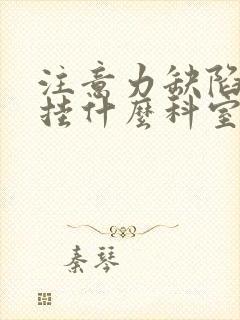 注意力缺陷
挂什麼科室
秦琴